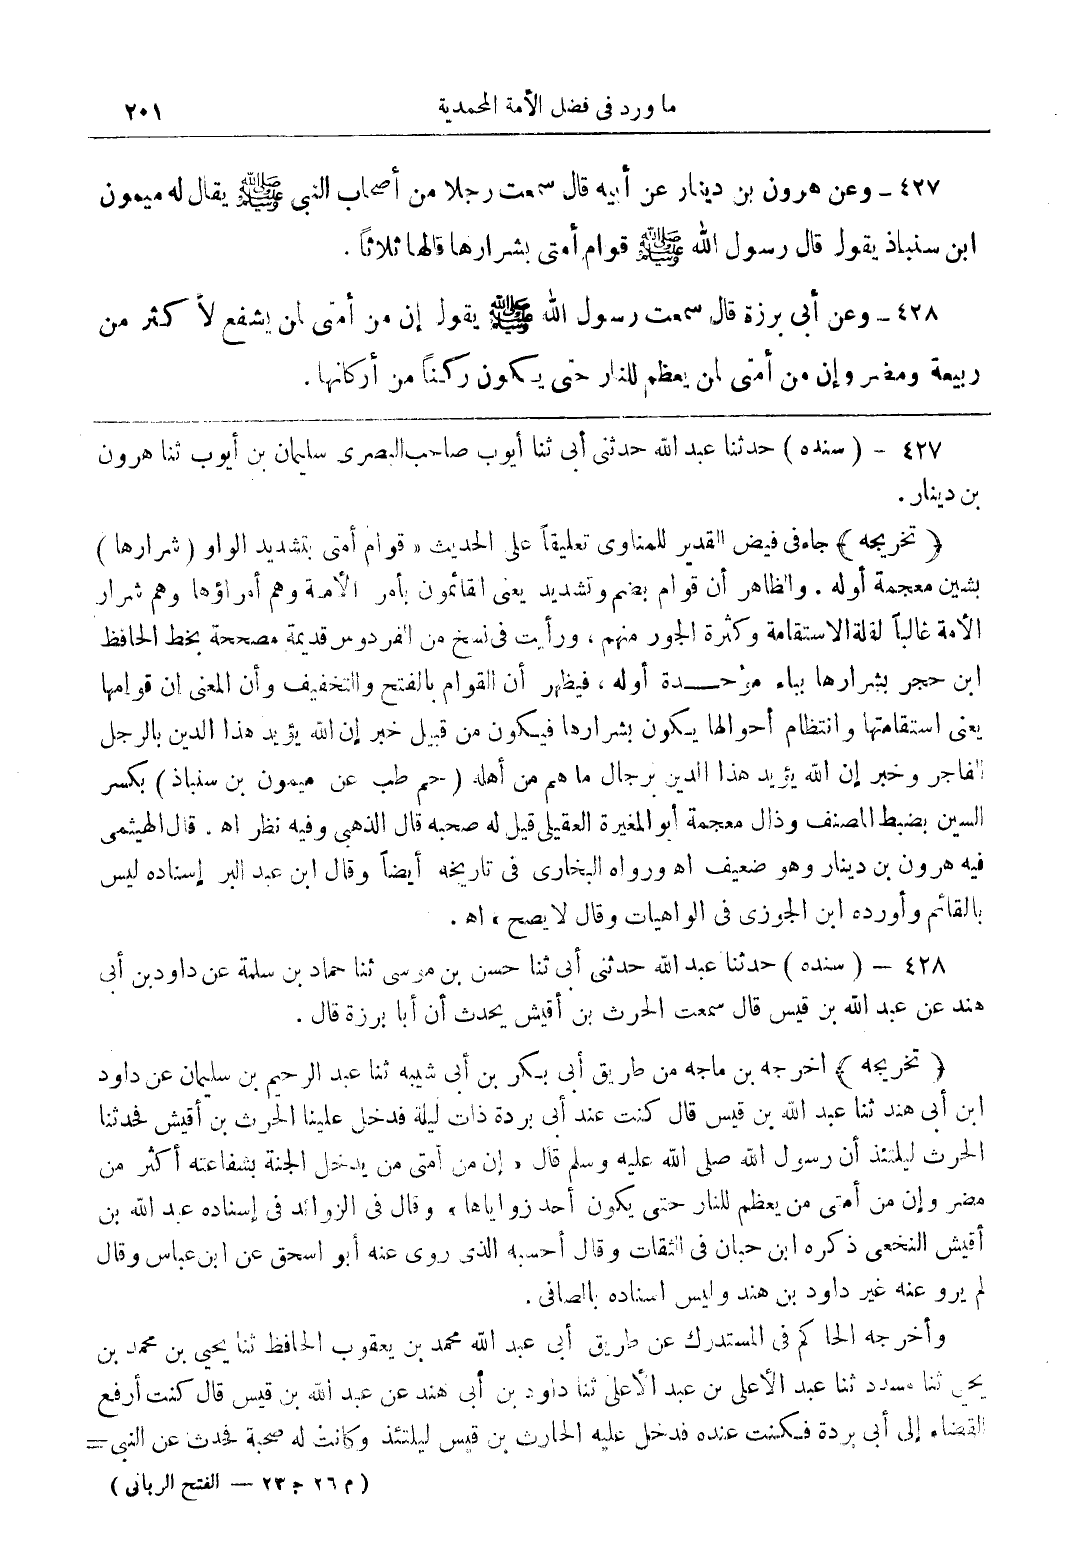 ما ورد في فضل الأمة المحمدية ٢٠١
٤٢٧ - وعن هرون بن دينار عن أبيه قال سمعت رجلا من أصحاب النبي ﷺ يقال له ميمون
ابن سنباذ يقول قال رسول الله ﷺ قوام أمتى بشرارها قالها ثلاثاً .
٤٢٨ - وعن أبى برزة قال سمعت رسول الله ﷺ يقول إن من أمتى لمن يشفع لأكثر من
ربيعة ومضر وإن من أمتى لمن يعظم للنار حتى يكون ركناً من أركانها .
٤٢٧ - ( سنده ) حدثنا عبد الله حدثنى أبى ثنا أيوب صاحب البصرى سليمان بن أيوب ثنا هرون
بن دينار .
﴿ تخريجه ﴾ جاء فى فيض القدير للمناوى تعليقاً على الحديث « قوام أمتى بتشديد الواو ( شرارها )
بشين معجمة أوله . والظاهر أن قوام بضم وتشديد يعنى القائمون بأمر الأمة وهم أمراؤها وهم شرار
الأمة غالباً لقلة الاستقامة وكثرة الجور منهم ، ورأيت فى نسخ من الفردوس قديمة مصححة بخط الحافظ
ابن حجر بشرارها بباء موحـــدة أوله ، فيظهر أن القوام بالفتح والتخفيف وأن المعنى ان قوامها
يعنى استقامتها وانتظام أحوالها يكون بشرارها فيكون من قبيل خبر إن الله يؤيد هذا الدين بالرجل
الفاجر وخبر إن الله يؤيد هذا الدين برجال ما هم من أهله ( حم طب عن ميمون بن سنباذ ) بكسر
السين بضبط المصنف وذال معجمة أبو المغيرة العقيلى قيل له صحبه قال الذهبى وفيه نظر اه . قال الهيثمى
فيه هرون بن دينار وهو ضعيف اه ورواه البخارى فى تاريخه أيضاً وقال ابن عبد البر إسناده ليس
بالقائم وأورده ابن الجوزى فى الواهيات وقال لا يصح » اه .
٤٢٨ – ( سنده ) حدثنا عبد الله حدثنى أبى ثنا حسن بن موسى ثنا حماد بن سلمة عن داود بن أبى
هند عن عبد الله بن قيس قال سمعت الحرث بن أقيش يحدث أن أبا برزة قال .
﴿ تخريجه ﴾ اخرجه بن ماجه من طريق أبى بكر بن أبى شيبه ثنا عبد الرحيم بن سليمان عن داود
ابن أبى هند ثنا عبد الله بن قيس قال كنت عند أبى بردة ذات ليلة فدخل علينا الحرث بن أقيش فحدثنا
الحرث ليلتئذ أن رسول الله صلى الله عليه وسلم قال « إن من أمتى من يدخل الجنة بشفاعته أكثر من
مضر وإن من أمتى من يعظم للنار حتى يكون أحد زواياها » وقال فى الزوائد فى إسناده عبد الله بن
أقيش النخعى ذكره ابن حبان فى الثقات وقال أحسبه الذى روى عنه أبو اسحق عن ابن عباس وقال
لم يرو عنه غير داود بن هند وليس اسناده بالصافى .
وأخرجه الحاكم فى المستدرك عن طريق أبى عبد الله محمد بن يعقوب الحافظ ثنا يحيى بن محمد بن
يحيى ثنا مسدد ثنا عبد الأعلى بن عبد الأعلى ثنا داود بن أبى هند عن عبد الله بن قيس قال كنت أرفع
القضاء إلى أبى بردة فكنت عنده فدخل عليه الحارث بن قيس ليلتئذ وكانت له صحبة فحدث عن النبى =
( م ٢٦ ج ٢٣ — الفتح الربانى )